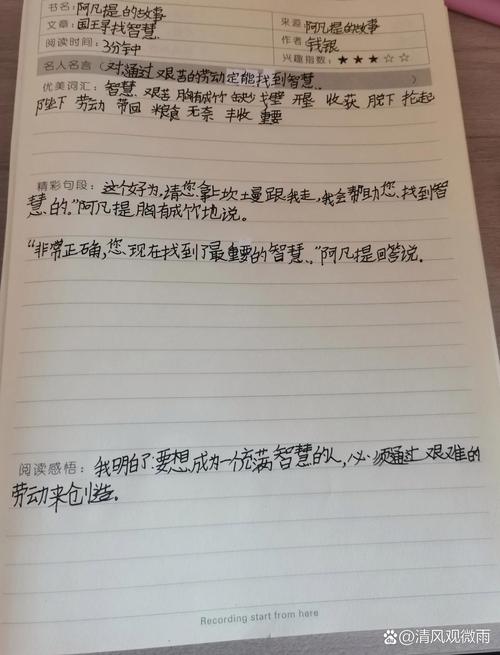 书名：阿凡提的故事
文章：国王寻找智慧 来源 阿凡提的故事
阅读时间：3分钟 作者 钱银
兴趣指数：★★★☆☆
名人名言（对通过艰苦的劳动定能找到智慧。）
优美词汇：智慧 艰苦 胸有成竹 戈壁 开垦 收获 脱下 抡起
陛下 劳动 带回 粮食 无奈 丰收 重要
精彩句段：这个好为，请您拿上坎土曼跟我走，我会帮助您找到智
慧的。”阿凡提胸有成竹地说。
“非常正确，您现在找到了最重要的智慧。”阿凡提回答说。
阅读感悟：我明白了：要想成为一个充满智慧的人，必须通过艰难的
劳动来创造。
Recording start from here
清风观微雨